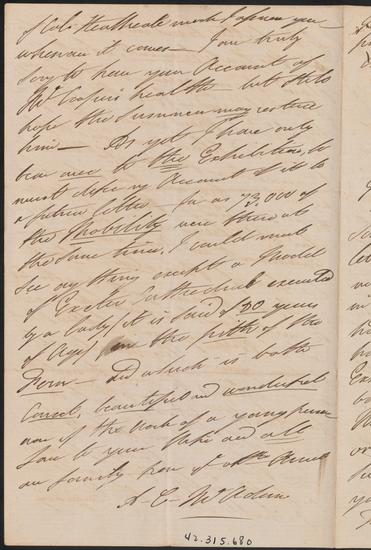 of Col. Heathcote work I assure you
whenever it comes — I am truly
sorry to hear your Account of
Mr Cooper's health — but still
hope the Summer may restore
him — As yet I have only
been once to the Exhibition, so
must defer my Account of it to
a future letter — for as 73,000 of
the Mobility were there at
the same time, I could not
see any thing except a Model
of Exeter Cathedral executed
by a Lady (it is said of 20 years
of Age) in the pith of the
Fern — and which is both
Correct, beautiful and wonderful
even if the work of a young person
Love to your and all
our family from
A. C. McAdam
42.315.680